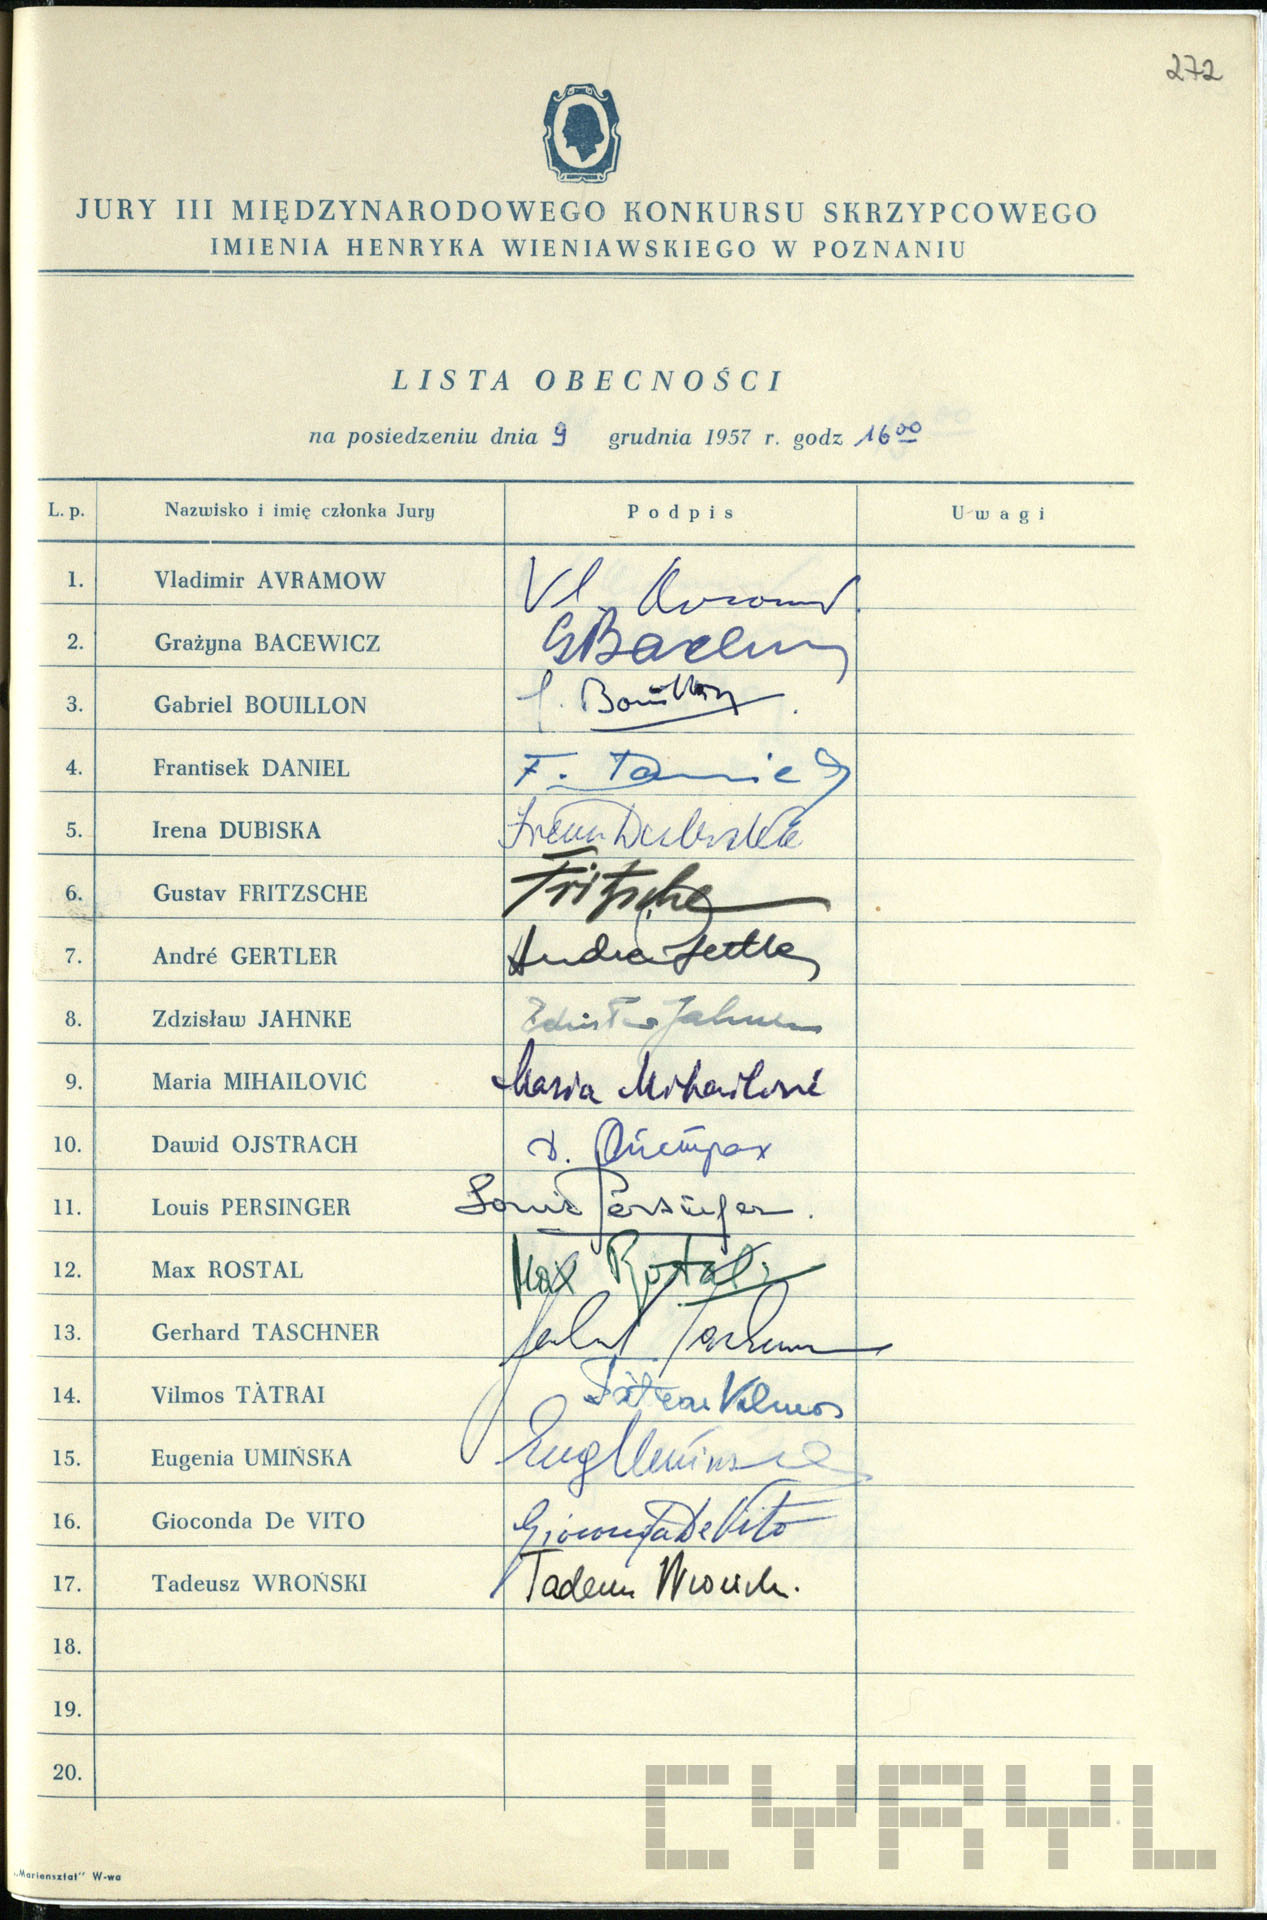 272
JURY III MIĘDZYNARODOWEGO KONKURSU SKRZYPCOWEGO
IMIENIA HENRYKA WIENIAWSKIEGO W POZNANIU
LISTA OBECNOŚCI
na posiedzeniu dnia 9 grudnia 1957 r. godz 16 00
L. p. Nazwisko i imię członka Jury Podpis Uwagi
1. Vladimir AVRAMOW Vl Avramov
2. Grażyna BACEWICZ GBacewicz
3. Gabriel BOUILLON G. Bouillon
4. Frantisek DANIEL F. Daniel
5. Irena DUBISKA Irena Dubiska
6. Gustav FRITZSCHE Fritzsche
7. André GERTLER André Gertler
8. Zdzisław JAHNKE Zdzisław Jahnke
9. Maria MIHAILOVIĆ Maria Mihailović
10. Dawid OJSTRACH D. Ойстрах
11. Louis PERSINGER Louis Persinger.
12. Max ROSTAL Max Rostal
13. Gerhard TASCHNER Gerhard Taschner
14. Vilmos TÀTRAI Tátrai Vilmos
15. Eugenia UMIŃSKA EugUmińska
16. Gioconda De VITO Gioconda De Vito
17. Tadeusz WROŃSKI Tadeusz Wroński.
18.
19.
20.
„Mariensztat” W-wa
CYRYL